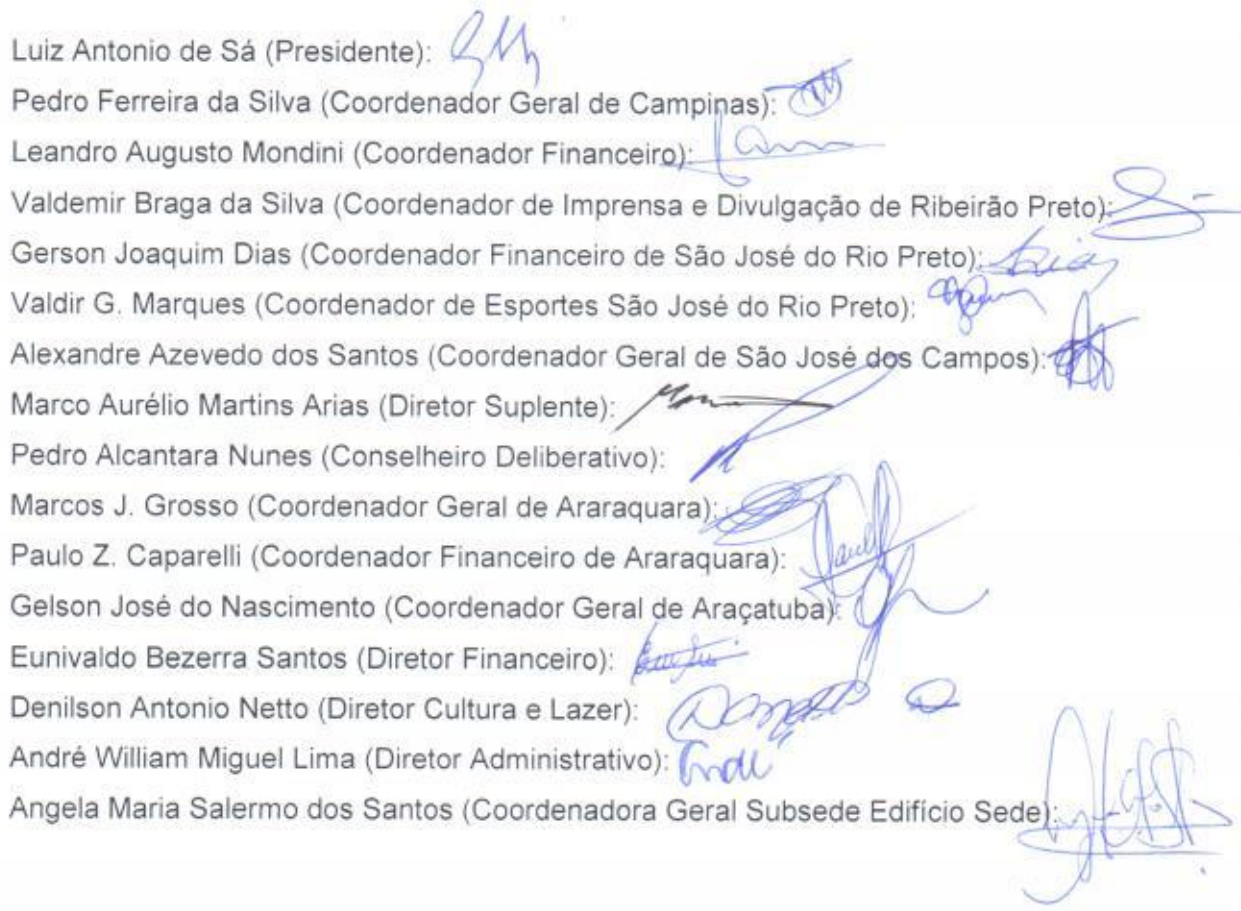 Luiz Antonio de Sá (Presidente):
Pedro Ferreira da Silva (Coordenador Geral de Campinas):
Leandro Augusto Mondini (Coordenador Financeiro):
Valdemir Braga da Silva (Coordenador de Imprensa e Divulgação de Ribeirão Preto):
Gerson Joaquim Dias (Coordenador Financeiro de São José do Rio Preto):
Valdir G. Marques (Coordenador de Esportes São José do Rio Preto):
Alexandre Azevedo dos Santos (Coordenador Geral de São José dos Campos):
Marco Aurélio Martins Arias (Diretor Suplente):
Pedro Alcantara Nunes (Conselheiro Deliberativo):
Marcos J. Grosso (Coordenador Geral de Araraquara):
Paulo Z. Caparelli (Coordenador Financeiro de Araraquara):
Gelson José do Nascimento (Coordenador Geral de Araçatuba):
Eunivaldo Bezerra Santos (Diretor Financeiro):
Denilson Antonio Netto (Diretor Cultura e Lazer):
André William Miguel Lima (Diretor Administrativo):
Angela Maria Salermo dos Santos (Coordenadora Geral Subsede Edifício Sede):